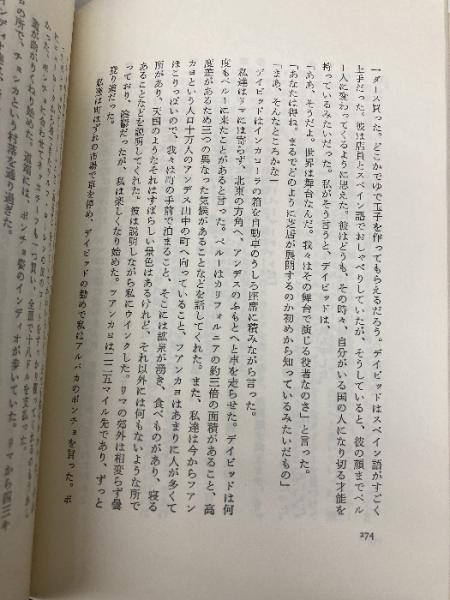 一ダース買った。どこかでゆで玉子を作ってもらえるだろう。デイビッドはスペイン語がすごく
上手だった。彼は店員とスペイン語でおしゃべりしていたが、そうしていると、彼の顔までペル
ー人に変わってくるように思えた。彼はどうも、その時々、自分がいる国の人になり切る才能を
持っているみたいだった。私がそう言うと、デイビッドは、
「ああ、そうだよ。世界は舞台なんだ。我々はその舞台で演じる役者なのさ」と言った。
「あなたは得ね。まるでどのように芝居が展開するのか初めから知っているみたいだもの」
「まあ、そんなところかな」
デイビッドはインカコーラの箱を自動車のうしろ座席に積みながら言った。
私達はリマには寄らず、北東の方角へ、アンデスのふもとへと車を走らせた。デイビッドは何
度もペルーに来たことがあると言った。ペルーはカリフォルニアの約三倍の面積があること、高
度差があるため三つの異なった気候があることなどを話してくれた。また、私達は今からフアン
カヨという人口十万人のアンデス山中の町へ向っていること、フアンカヨはあまりに人が多くて
ほこりっぽいので、我々は町の手前で泊まること、そこには鉱泉が湧き、食べものがあり、寝る
所があり、天国のようなそれはすばらしい景色はあるけれど、それ以外には何もないような所で
あることなどを説明してくれた。彼は説明しながら私にウインクした。リマの郊外は相変らず曇
っており、陰鬱だったが、私は楽しくなり始めた。フアンカヨは一二五マイル先であり、ずっと
登り道だった。
私達は町はずれの市場で車を停め、デイビッドの勧めで私はアルパカのポンチョを買った。ポ
274